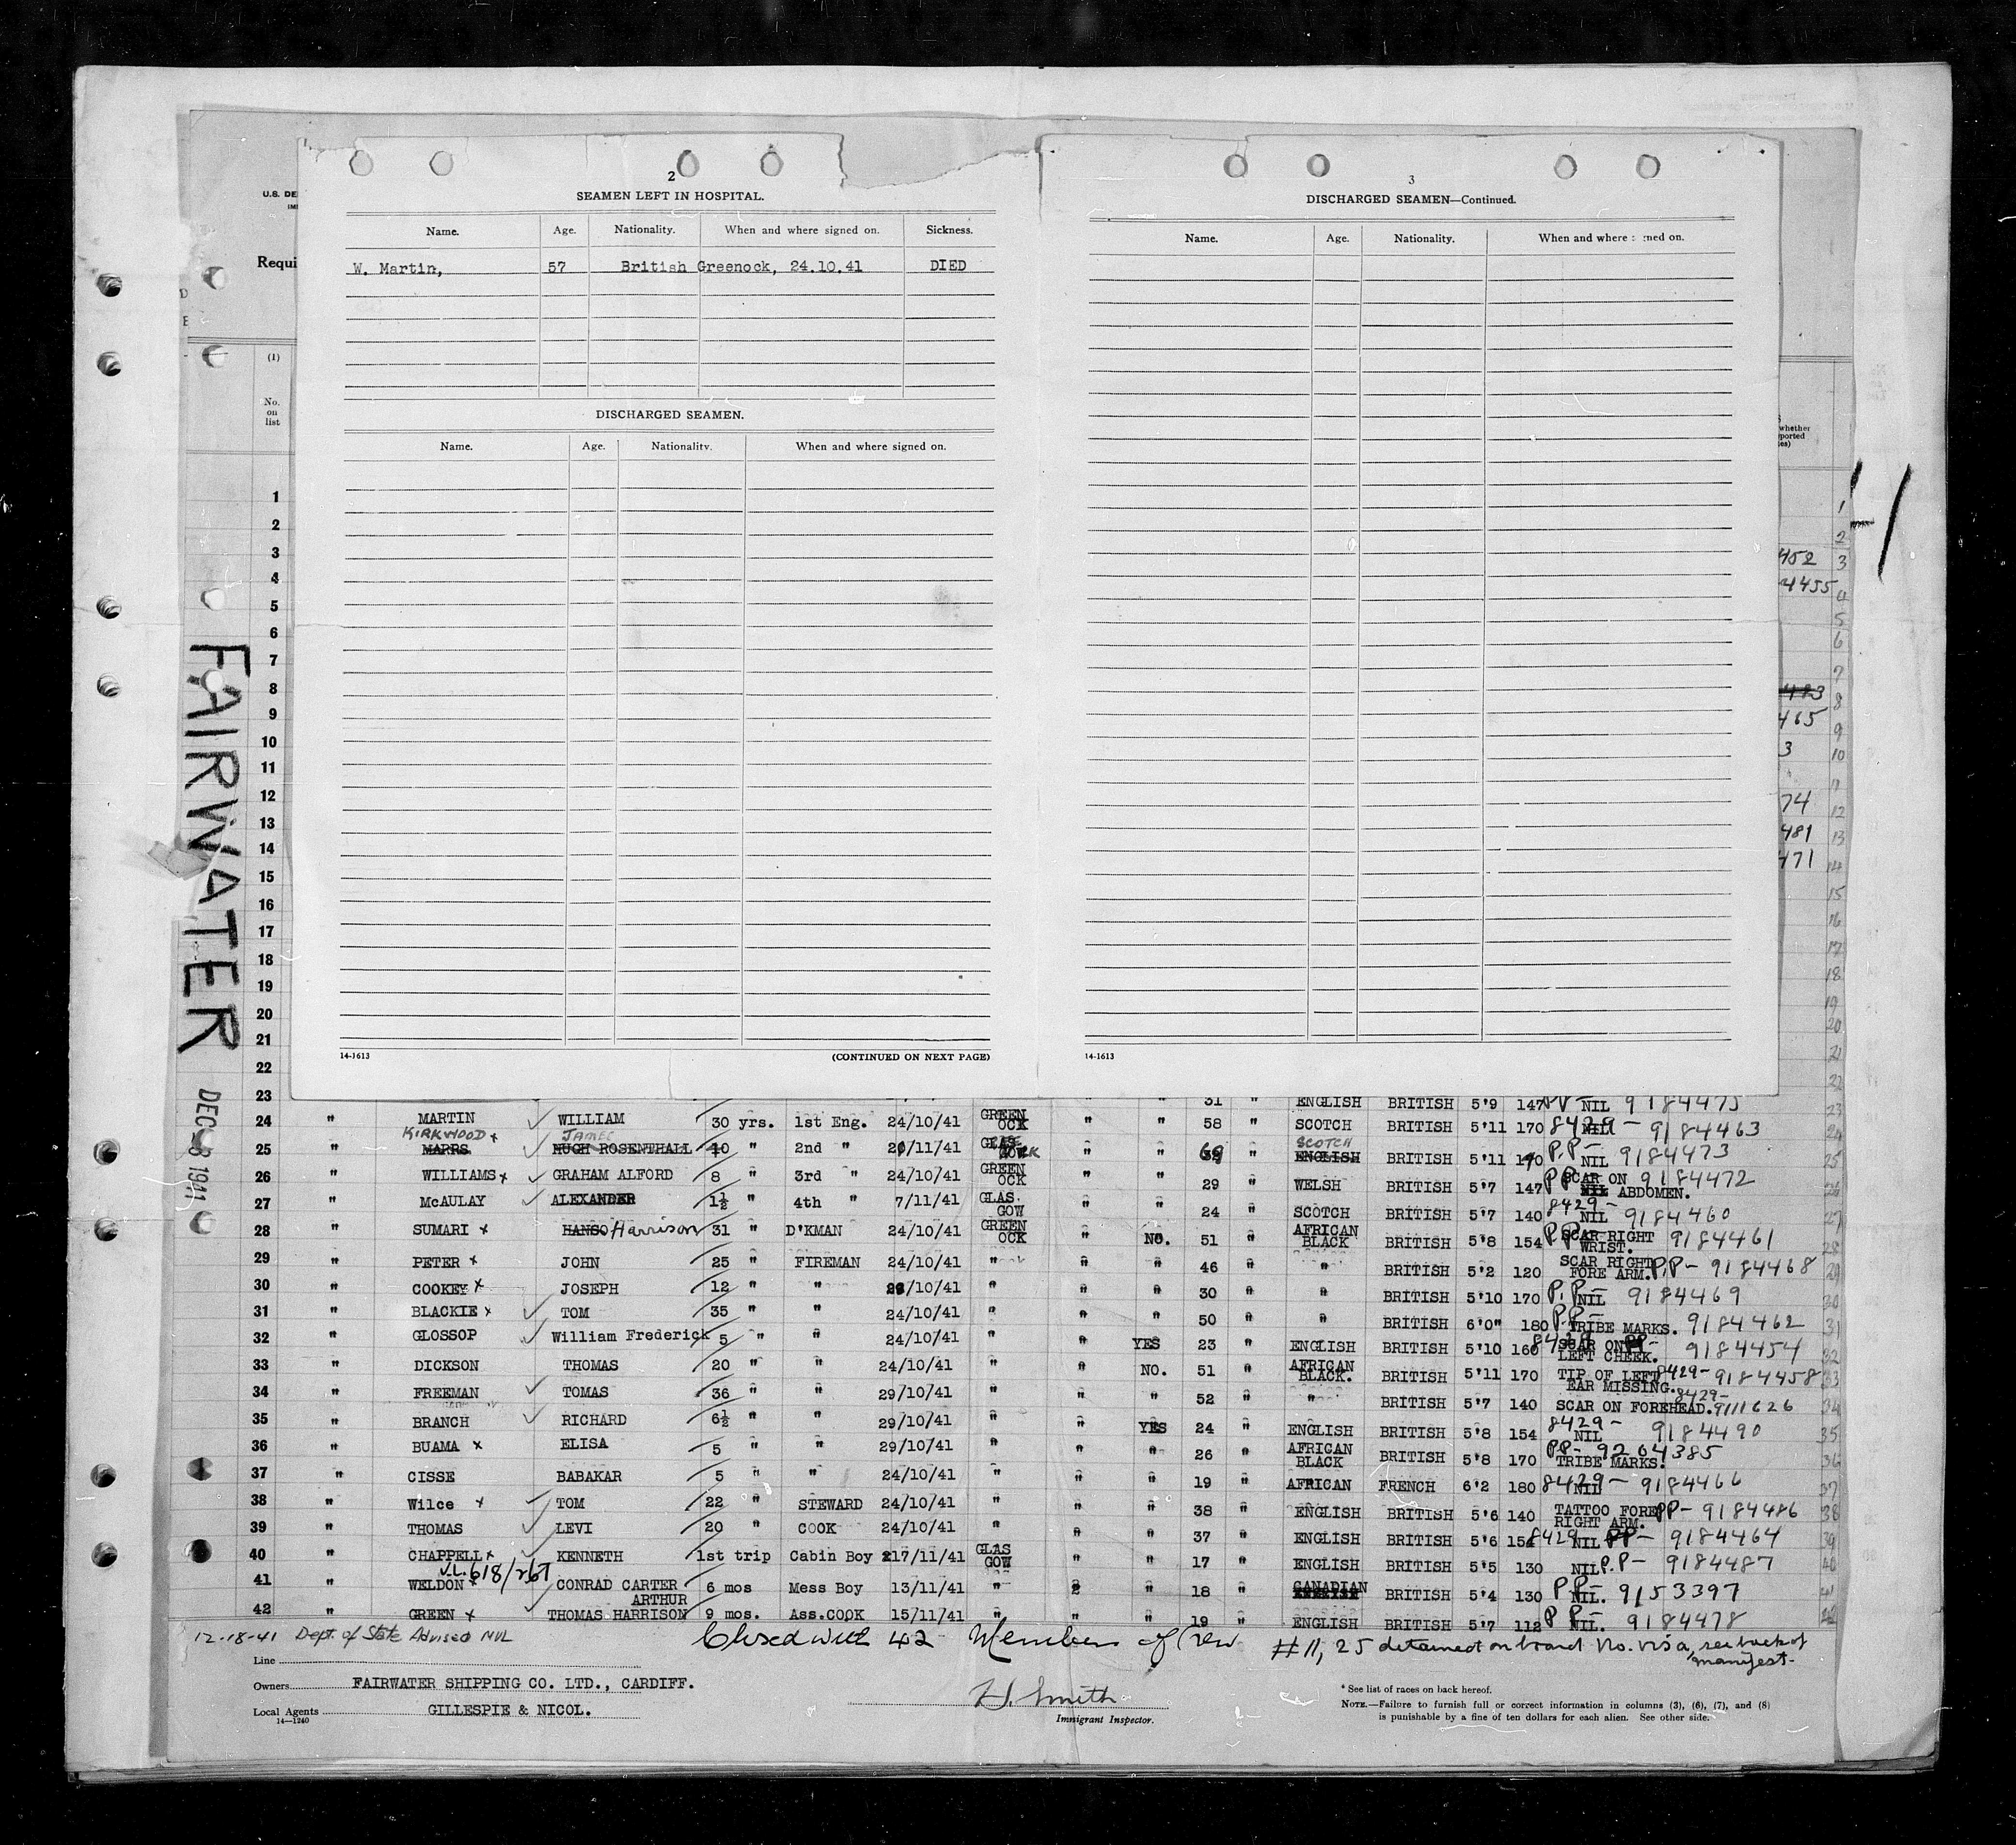 2
SEAMEN LEFT IN HOSPITAL.
Name. Age. Nationality. When and where signed on. Sickness.
W. Martin, 57 British Greenock, 24.10.41 DIED
DISCHARGED SEAMEN.
Name. Age. Nationality. When and where signed on.
14-1613 (CONTINUED ON NEXT PAGE)
3
DISCHARGED SEAMEN—Continued.
Name. Age. Nationality. When and where ned on.
14-1613
U.S. DE
IM
Requi
(1)
No.
on
list
whether
ported
es)
FAIRWATER
DEC 8 1941
1
2
3 452
4 4455
5
6
7
8
9 465
10 3
11
12 74
13 481
14 471
15
16
17
18
19
20
21
22
23 31 " ENGLISH BRITISH 5'9 147 NIL 9184475
24 " MARTIN WILLIAM 30 yrs. 1st Eng. 24/10/41 GREENOCK " " 58 " SCOTCH BRITISH 5'11 170 8429- NIL 9184463
25 " MARRS KIRKWOOD x HUGH ROSENTHALL JAMES 10 " 2nd " /11/41 " " " SCOTCH ENGLISH BRITISH 5'11 P.P- NIL 9184473
26 " WILLIAMS x GRAHAM ALFORD 8 " 3rd " 24/10/41 GREENOCK " " 29 " WELSH BRITISH 5'7 147 PP SCAR ON NIL ABDOMEN. 9184472
27 " McAULAY ALEXANDER 1½ " 4th " 7/11/41 GLASGOW " " 24 " SCOTCH BRITISH 5'7 140 8429- NIL 9184460
28 " SUMARI x HANSO Harrison 31 " D'KMAN 24/10/41 GREENOCK " NO. 51 " AFRICAN BLACK BRITISH 5'8 154 P.P- SCAR RIGHT WRIST. 9184461
29 " PETER x JOHN 25 " FIREMAN 24/10/41 " " " 46 " " BRITISH 5'2 120 SCAR RIGHT FORE ARM. P.P- 9184468
30 " COOKEY x JOSEPH 12 " " /10/41 " " " 30 " " BRITISH 5'10 170 P.P- NIL 9184469
31 " BLACKIE x TOM 35 " " 24/10/41 " " " 50 " " BRITISH 6'0" 180 P.P- TRIBE MARKS. 9184462
32 " GLOSSOP William Frederick 5 " " 24/10/41 " " YES 23 " ENGLISH BRITISH 5'10 160 8429 SCAR ON PP- LEFT CHEEK. 9184454
33 " DICKSON THOMAS 20 " " 24/10/41 " " NO. 51 " AFRICAN BLACK. BRITISH 5'11 170 TIP OF LEFT EAR MISSING. 8429- 9184458
34 " FREEMAN TOMAS 36 " " 29/10/41 " " " 52 " " BRITISH 5'7 140 SCAR ON FOREHEAD. 8429- 9111626
35 " BRANCH RICHARD 6½ " " 29/10/41 " " YES 24 " ENGLISH BRITISH 5'8 154 8429- NIL 9184490
36 " BUAMA x ELISA 5 " " 29/10/41 " " " 26 " AFRICAN BLACK BRITISH 5'8 170 P.P- 9264385 TRIBE MARKS.
37 " CISSE BABAKAR 5 " " 24/10/41 " " " 19 " AFRICAN FRENCH 6'2 180 8429- NIL 9184466
38 " Wilce x TOM 22 " STEWARD 24/10/41 " " " 38 " ENGLISH BRITISH 5'6 140 TATTOO FORE RIGHT ARM. PP- 9184486
39 " THOMAS LEVI 20 " COOK 24/10/41 " " " 37 " ENGLISH BRITISH 5'6 154 8429 NIL PP- 9184464
40 " CHAPPELL x KENNETH 1st trip Cabin Boy 17/11/41 GLASGOW " " 17 " ENGLISH BRITISH 5'5 130 NIL P.P- 9184487
V.L.618/267
41 " WELDON x CONRAD CARTER 6 mos Mess Boy 13/11/41 " " " 18 " CANADIAN BRITISH 5'4 130 P.P- NIL. 9153397
42 " GREEN x THOMAS ARTHUR HARRISON 9 mos. Ass.COOK 15/11/41 " " " 19 " ENGLISH BRITISH 5'7 112 P.P- NIL. 9184478
12-18-41 Dept. of State Advised MVL
Closed with 42 Members of Crew
#11, 25 detained on board No. visa, see back of manifest-
Line
Owners FAIRWATER SHIPPING CO. LTD., CARDIFF.
Local Agents GILLESPIE & NICOL.
14—1240
H. Smith
Immigrant Inspector.
* See list of races on back hereof.
NOTE.—Failure to furnish full or correct information in columns (3), (6), (7), and (8)
is punishable by a fine of ten dollars for each alien. See other side.